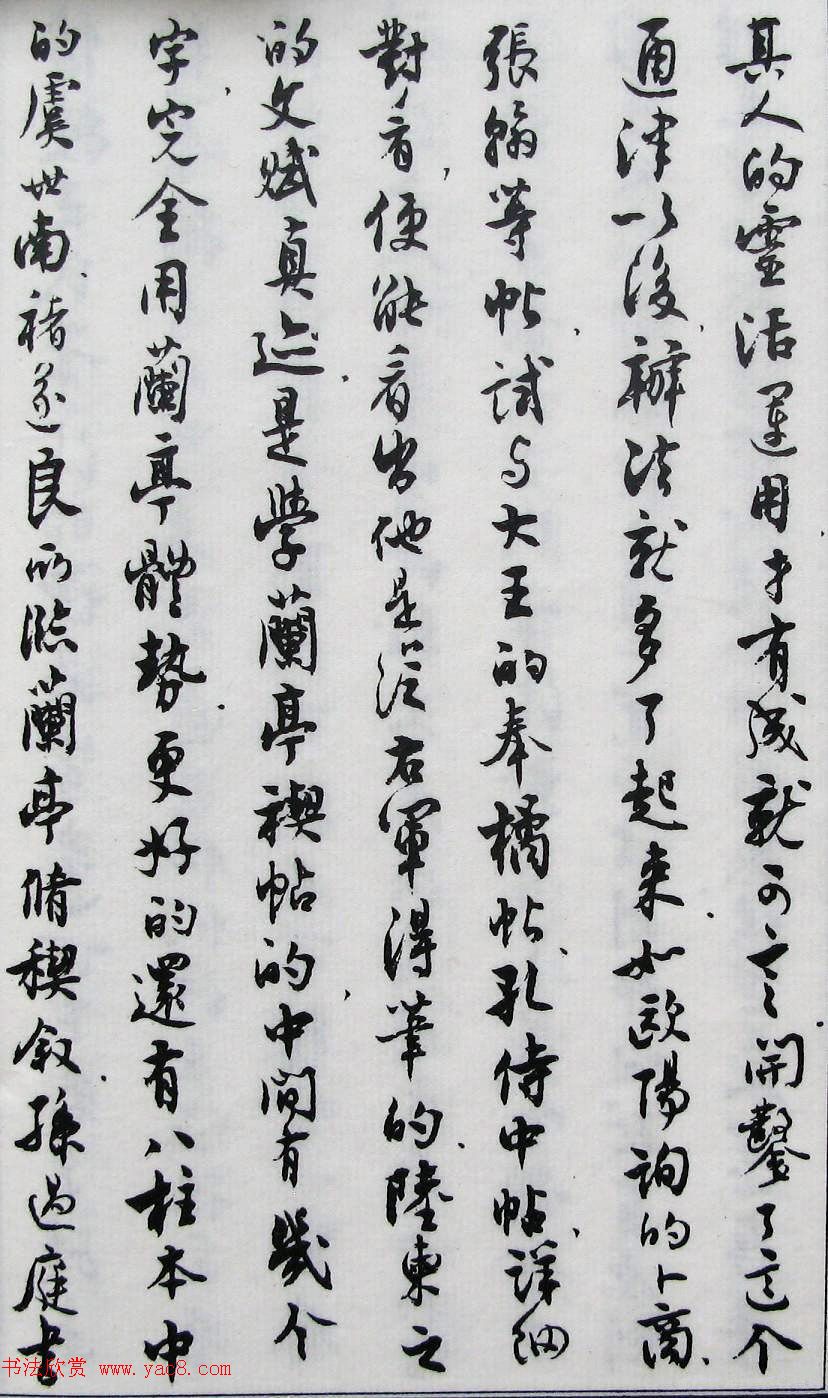 其人的靈活運用才有成就可言開鑿了這个
通津以後、辦法就多了起来、如歐陽詢的卜商、
張翰等帖、試与大王的奉橘帖、孔侍中帖、詳細
對看、便能看出他是從右軍得筆的、陸柬之
的文賦真迹、是學蘭亭禊帖的、中間有幾个
字、完全用蘭亭體勢、更好的還有八柱本中
的虞世南、褚遂良所臨蘭亭脩禊敘、孫過庭書
书法欣赏 www.yac8.com